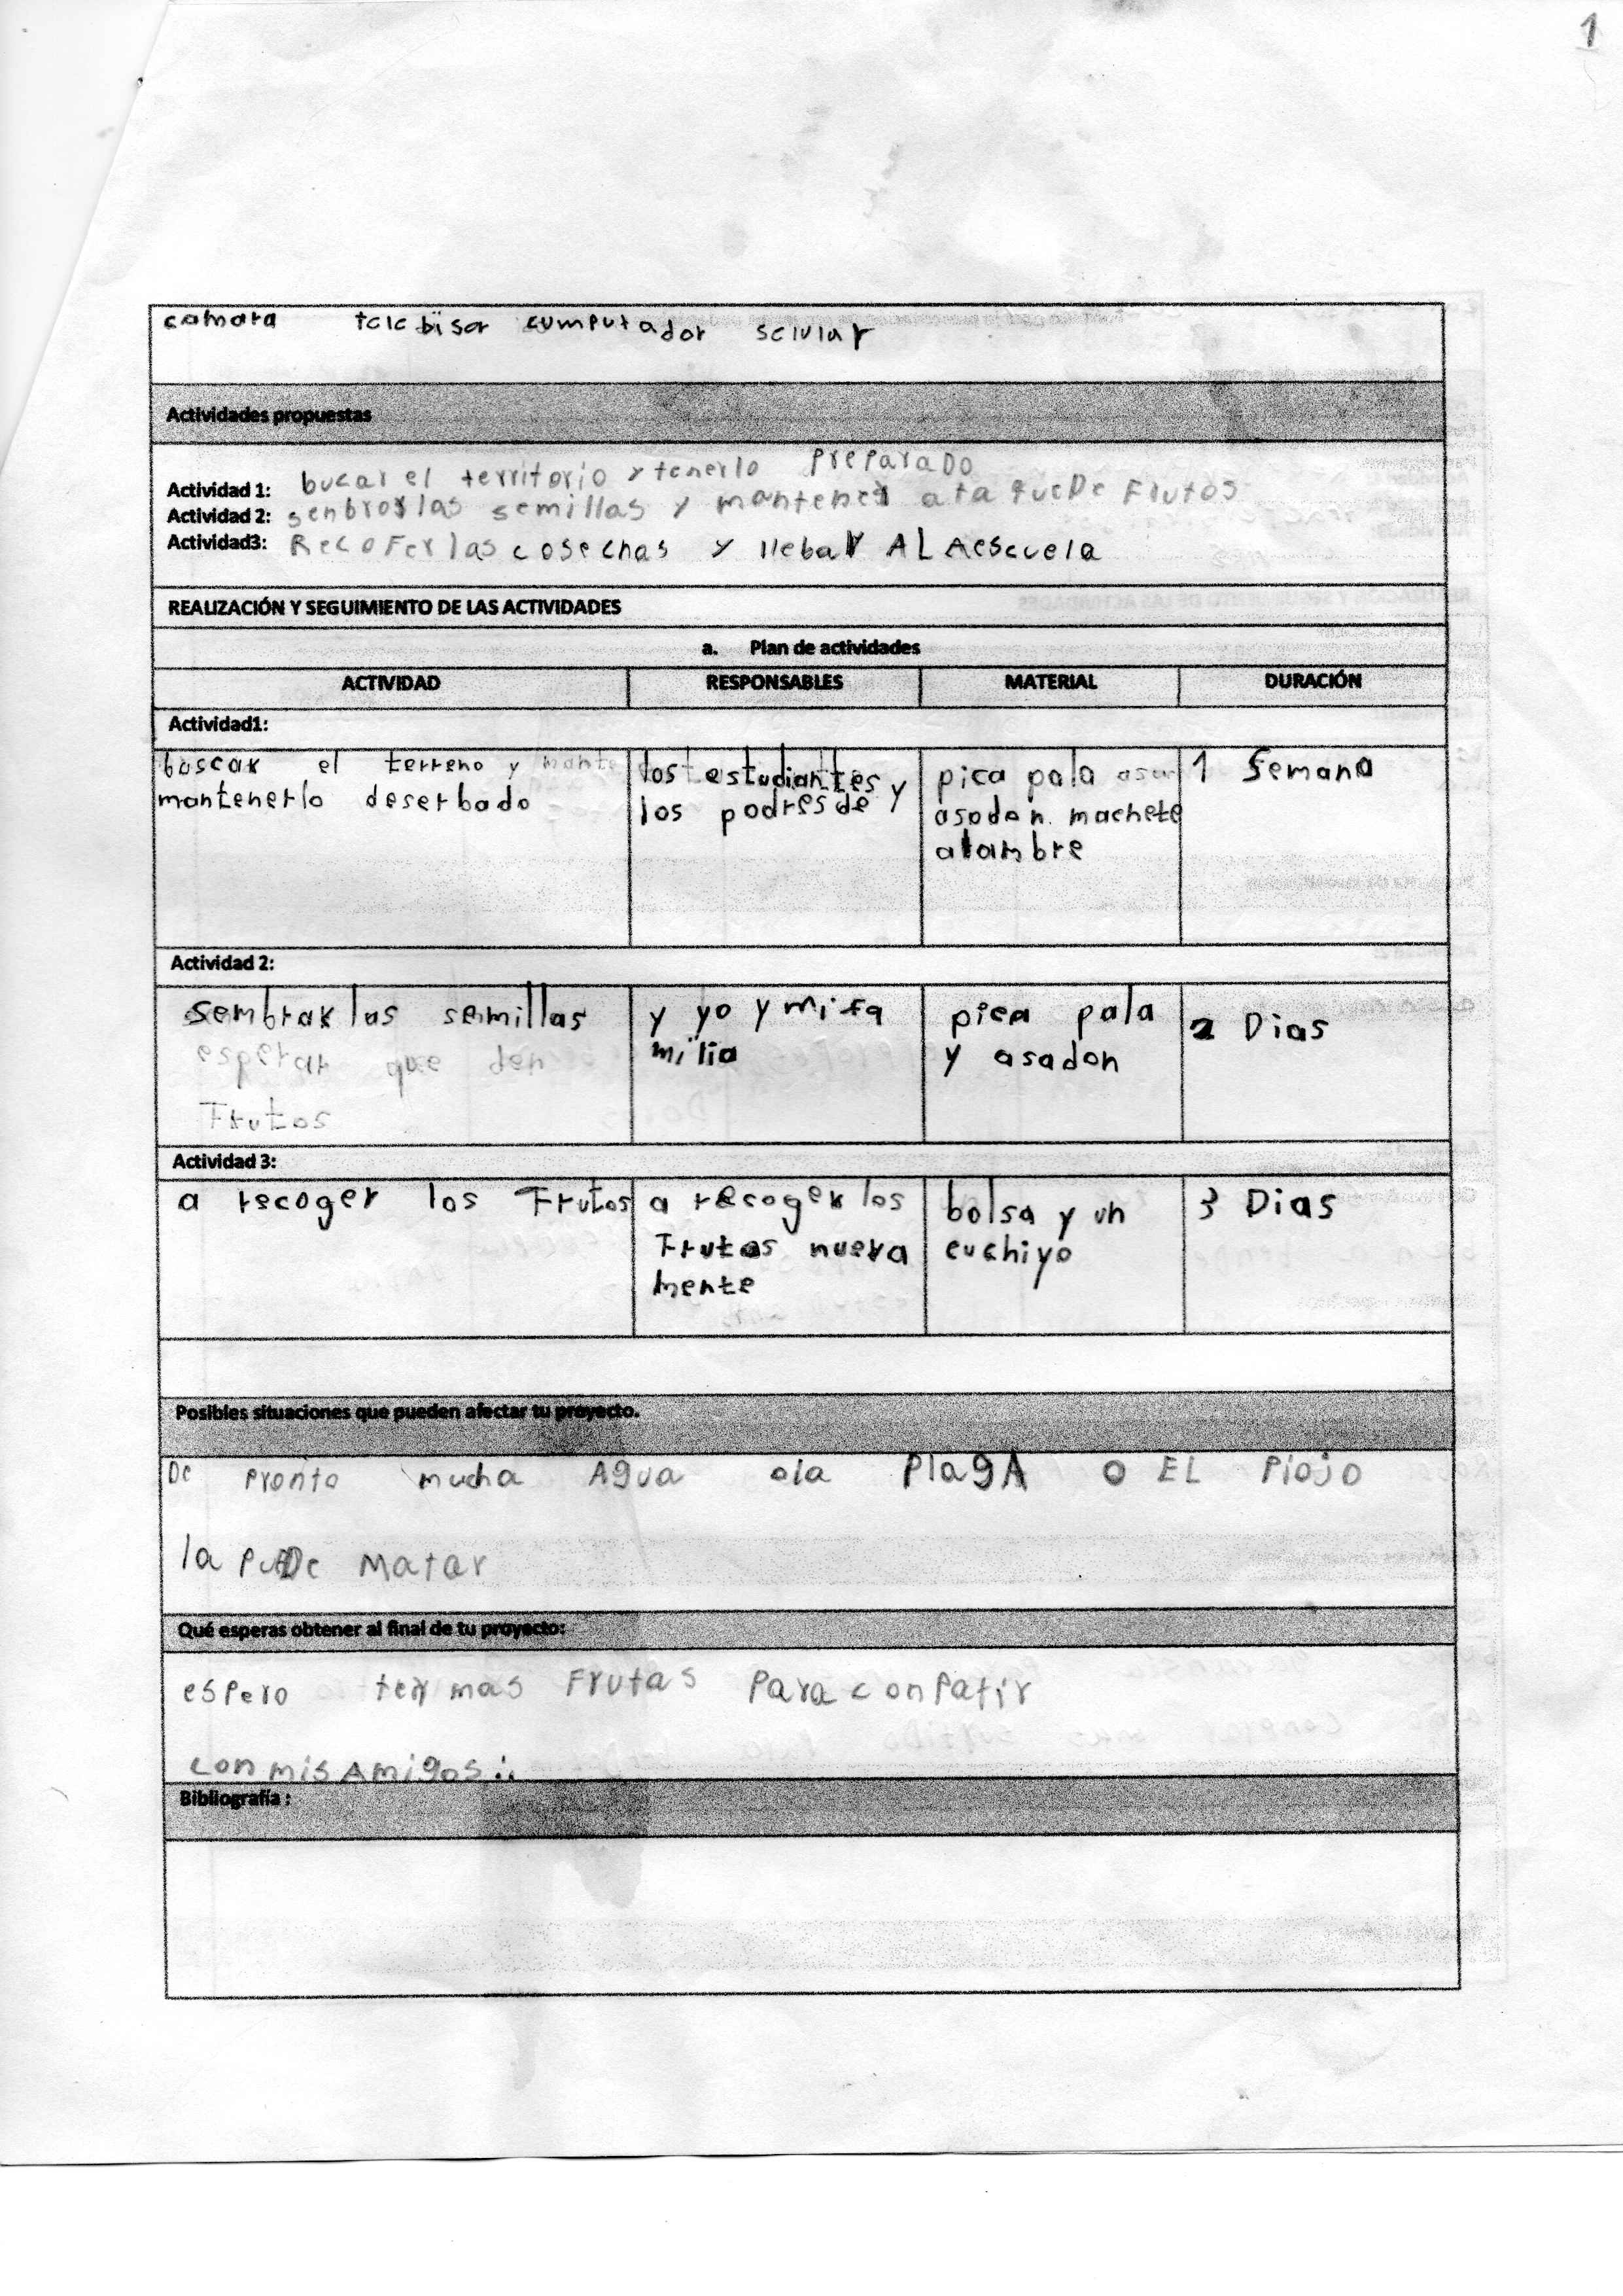 1
camara telebisor cumputador selular
Actividades propuestas
Actividad 1: bucar el territorio y tenerlo preparado
Actividad 2: senbror las semillas y mantener ata que De Frutos
Actividad3: RecoFer las cosechas y llebar A LA escuela
REALIZACIÓN Y SEGUIMIENTO DE LAS ACTIVIDADES
a. Plan de actividades
ACTIVIDAD RESPONSABLES MATERIAL DURACIÓN
Actividad1:
buscar el terreno y mante
mantenerlo deserbado
los estudiantes y
los padres de
pica pala asa
asadon machete
alambre
1 Semana
Actividad 2:
sembrar las semillas
esperar que den
Frutos
y yo y mi fa
milia
pica pala
y asadon
2 Dias
Actividad 3:
a recoger los Frutos
a recoger los
Frutos nueva
mente
bolsa y un
cuchiyo
3 Dias
Posibles situaciones que pueden afectar tu proyecto.
De pronto mucha Agua o la PlagA o EL Piojo
la PuEDe Matar
Qué esperas obtener al final de tu proyecto:
espero ter mas Frutas Para conPatir
con mis Amigos
Bibliografía :